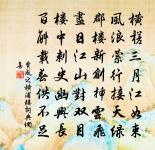 橫槎三月江如束
風浪縈行接天綠
郡樓新創雲飛
盡日江山對雙目
樓中刺史幽興長
百斛載春供不足
集